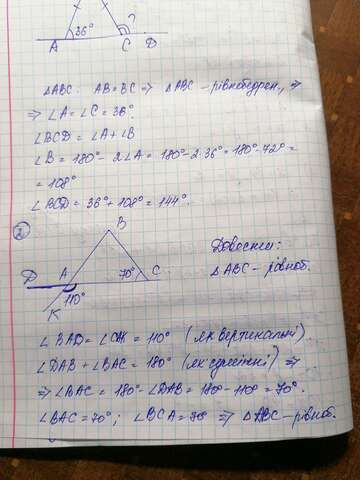 36° ?
A C D
△ABC: AB = BC => △ABC - рівнобедрен., =>
=> ∠A = ∠C = 36°.
∠BCD = ∠A + ∠B
∠B = 180° - 2∠A = 180° - 2·36° = 180° - 72° =
= 108°
∠BCD = 36° + 108° = 144°.
2
B
Довести:
D A 70° C
△ABC - рівноб.
110°
K
∠BAD = ∠CAK = 110° (як вертикальні)
∠DAB + ∠BAC = 180° (як суміжні) =>
=> ∠BAC = 180° - ∠DAB = 180° - 110° = 70°.
∠BAC = 70°; ∠BCA = 70° => △ABC - рівноб.